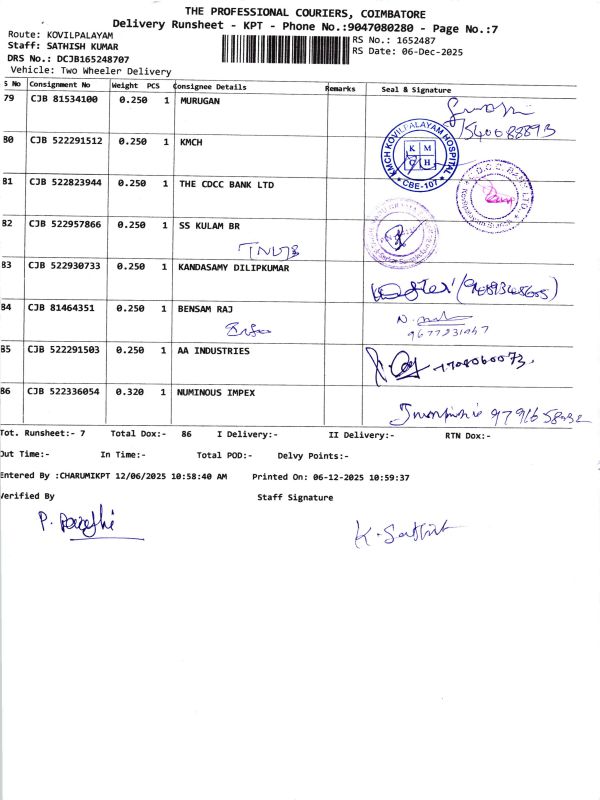 THE PROFESSIONAL COURIERS, COIMBATORE
Delivery Runsheet - KPT - Phone No.:9047080280 - Page No.:7
Route: KOVILPALAYAM
Staff: SATHISH KUMAR
DRS No.: DCJB165248707
Vehicle: Two Wheeler Delivery
RS No.: 1652487
RS Date: 06-Dec-2025
S No Consignment No Weight PCS Consignee Details Remarks Seal & Signature
79 CJB 81534100 0.250 1 MURUGAN
80 CJB 522291512 0.250 1 KMCH
KMCH KOVILPALAYAM HOSPITAL
K M
C H
* CBE-107 *
81 CJB 522823944 0.250 1 THE CDCC BANK LTD
82 CJB 522957866 0.250 1 SS KULAM BR
83 CJB 522930733 0.250 1 KANDASAMY DILIPKUMAR
84 CJB 81464351 0.250 1 BENSAM RAJ
85 CJB 522291503 0.250 1 AA INDUSTRIES
86 CJB 522336054 0.320 1 NUMINOUS IMPEX
Tot. Runsheet:- 7 Total Dox:- 86 I Delivery:- II Delivery:- RTN Dox:-
Out Time:- In Time:- Total POD:- Delvy Points:-
Entered By :CHARUMIKPT 12/06/2025 10:58:40 AM Printed On: 06-12-2025 10:59:37
Verified By Staff Signature
K. Sathish